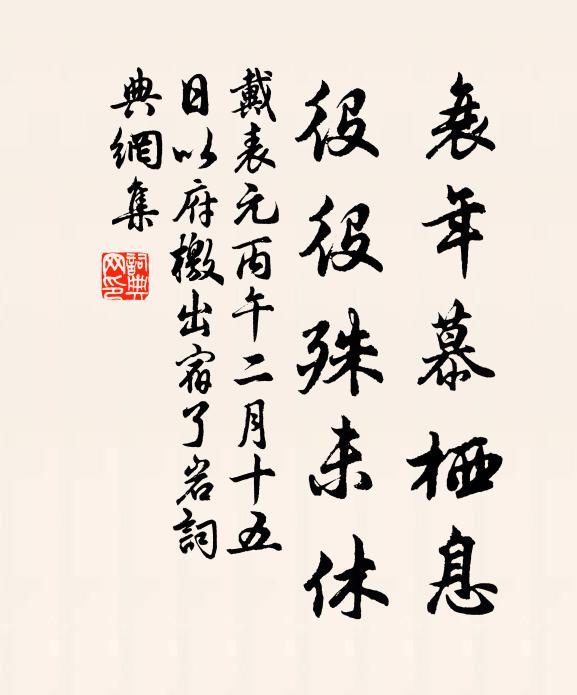 衰年慕栖息
役役殊未休
戴表元丙午二月十五
日以府檄出宿了岩詞
典網集
詞典網印